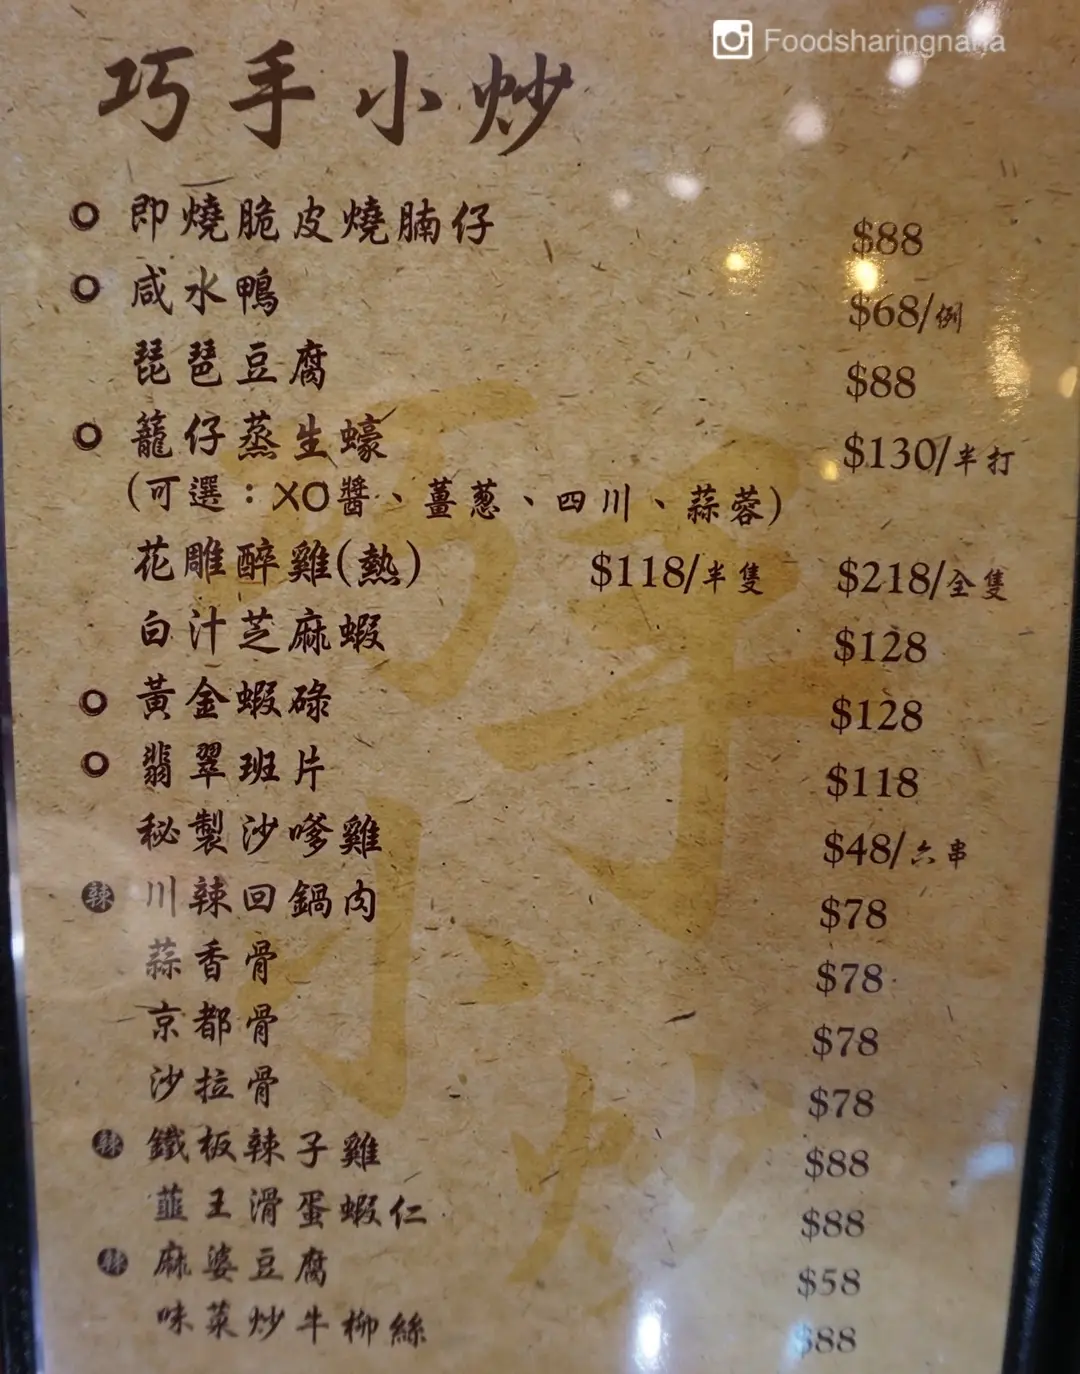 Foodsharingnana
巧手小炒
即燒脆皮燒腩仔 $88
咸水鴨 $68/例
琵琶豆腐 $88
籠仔蒸生蠔 $130/半打
(可選：XO醬、薑蔥、四川、蒜蓉)
花雕醉雞(熱) $118/半隻 $218/全隻
白汁芝麻蝦 $128
黃金蝦碌 $128
翡翠班片 $118
秘製沙嗲雞 $48/六串
辣 川辣回鍋肉 $78
蒜香骨 $78
京都骨 $78
沙拉骨 $78
辣 鐵板辣子雞 $88
韮王滑蛋蝦仁 $88
辣 麻婆豆腐 $58
味菜炒牛柳絲 $88